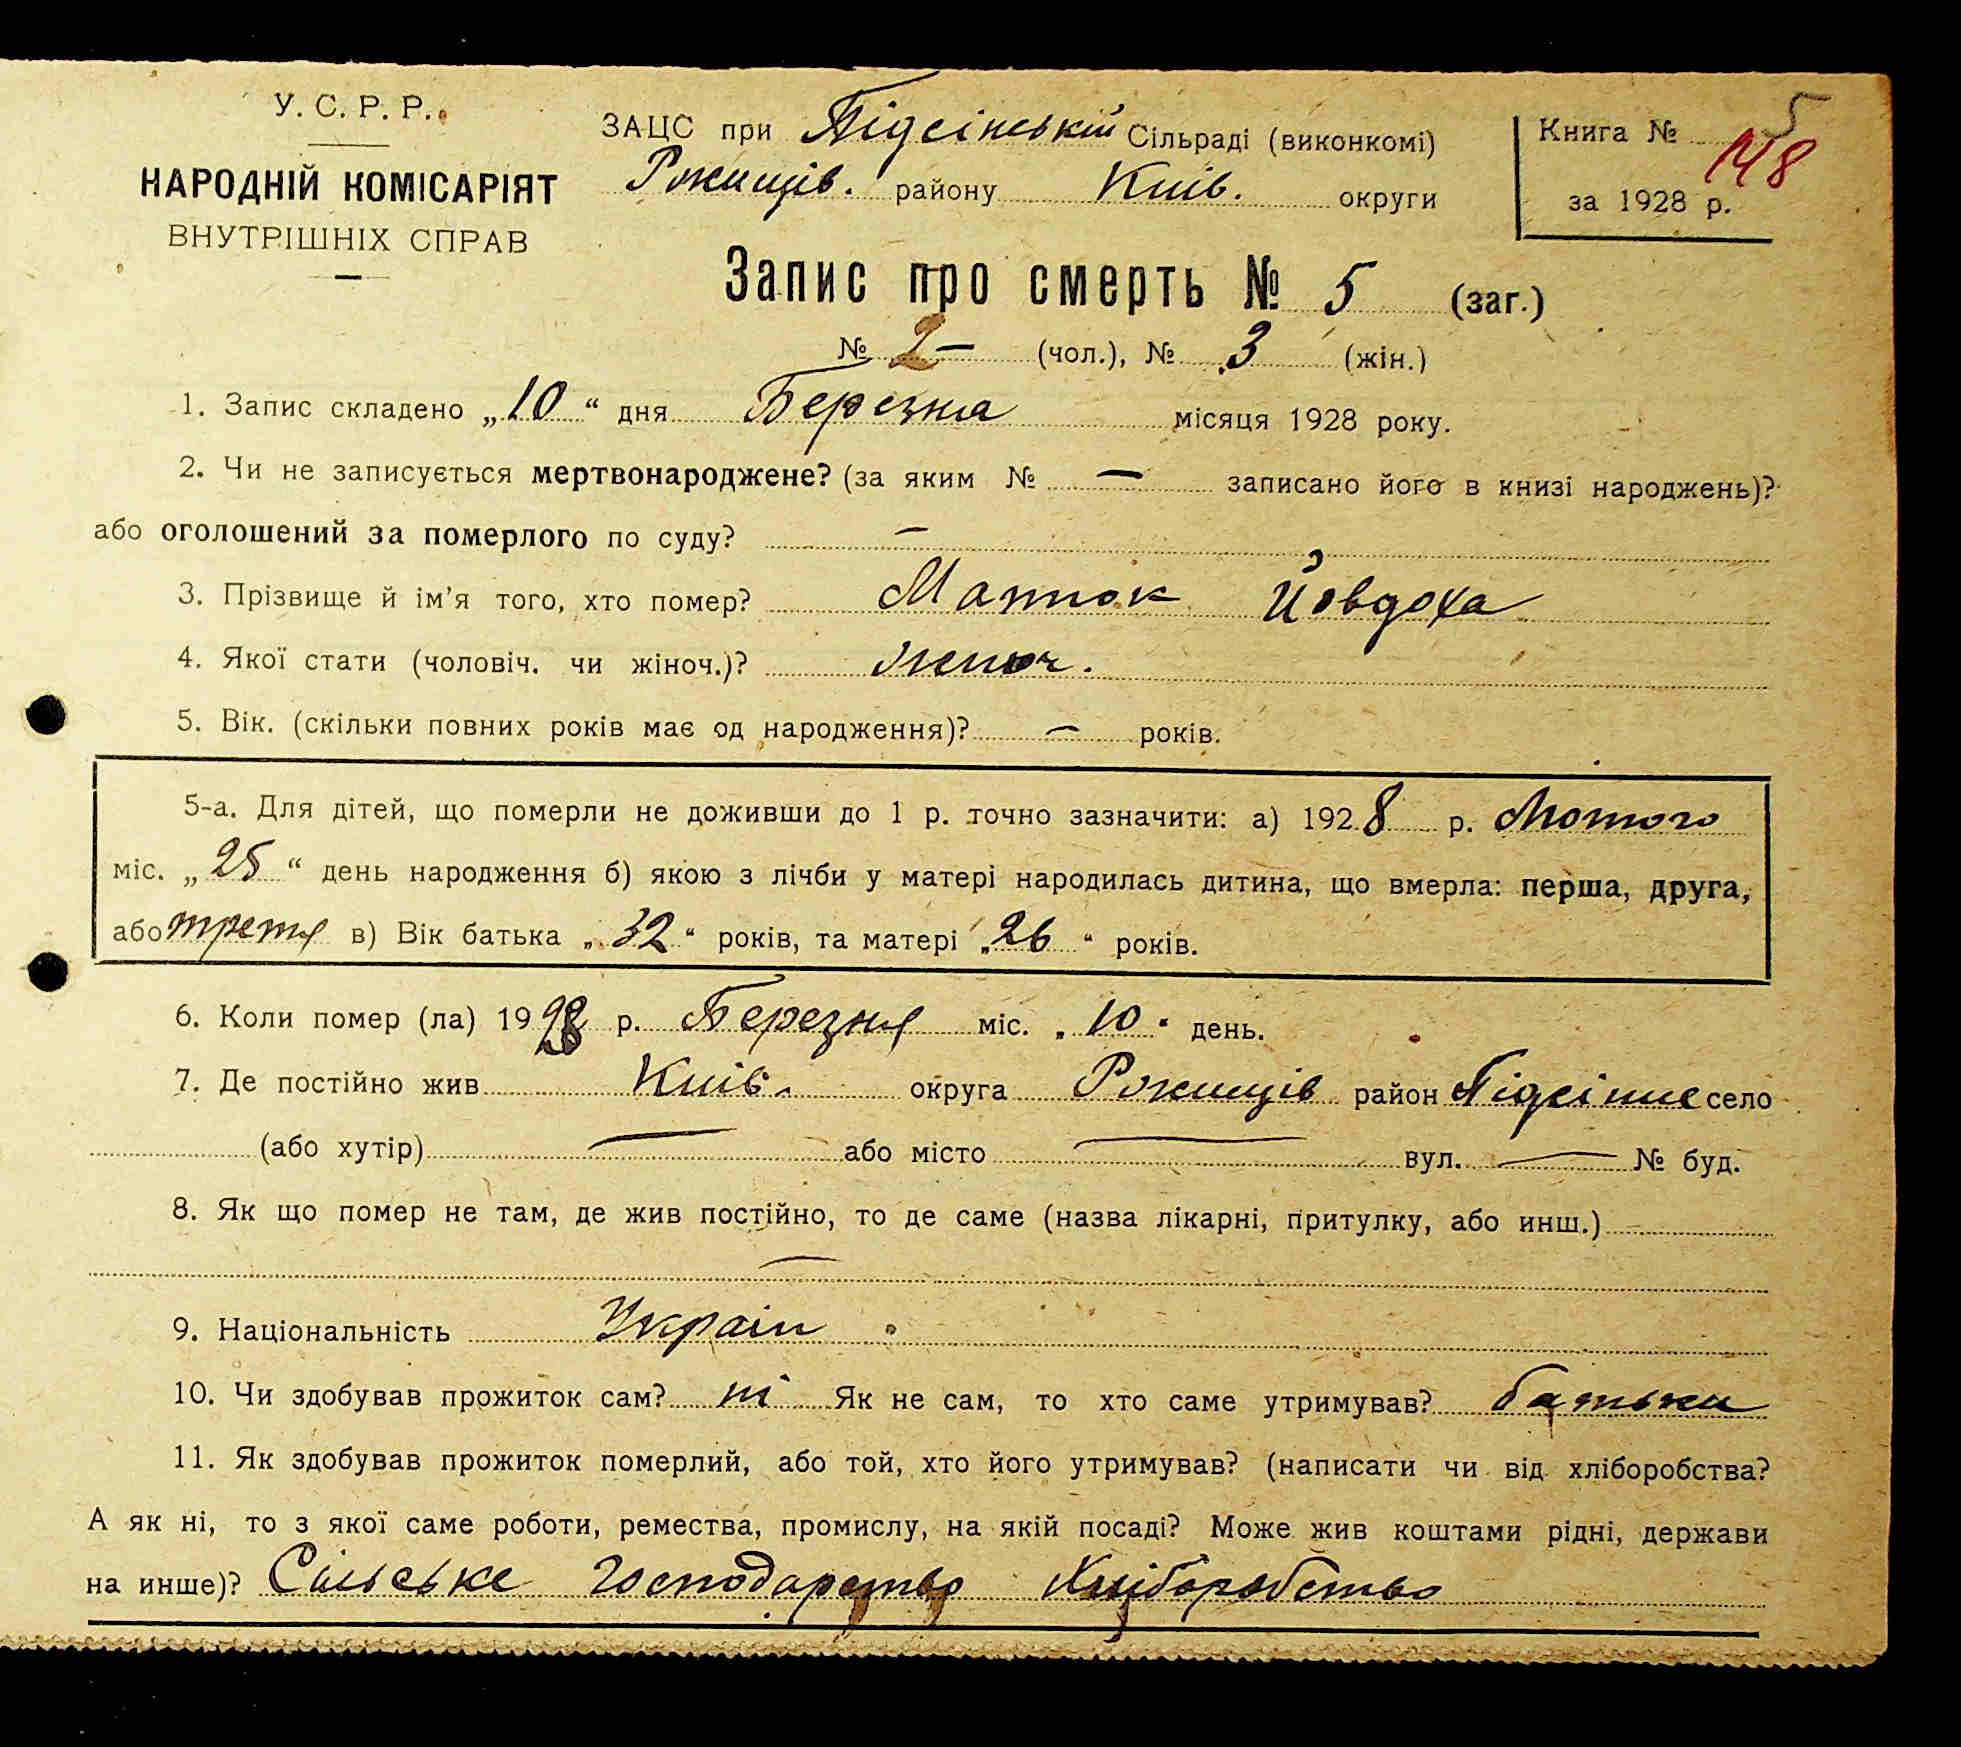 5
У. С. Р. Р.
ЗАЦС при Підсінській Сільраді (виконкомі)
Книга №
148
НАРОДНІЙ КОМІСАРІЯТ
Рокищів. району Київ. округи
за 1928 р.
ВНУТРІШНІХ СПРАВ
Запис про смерть № 5 (заг.)
№ 2 — (чол.), № 3 (жін.)
1. Запис складено „10“ дня Березня місяця 1928 року.
2. Чи не записується мертвонароджене? (за яким № — записано його в книзі народжень)?
або оголошений за померлого по суду? —
3. Прізвище й ім'я того, хто помер? Йовдоха
4. Якої стати (чоловіч. чи жіноч.)? жіноч.
5. Вік. (скільки повних років має од народження)? — років.
5-а. Для дітей, що померли не доживши до 1 р. точно зазначити: а) 1928 р. Лютого
міс. „25“ день народження б) якою з лічби у матері народилась дитина, що вмерла: перша, друга,
або третя в) Вік батька „32“ років, та матері „26“ років.
6. Коли помер (ла) 1928 р. Березня міс. „10“ день.
7. Де постійно жив Київ. округа Рокищів район село
(або хутір) — або місто — вул. — № буд.
8. Як що помер не там, де жив постійно, то де саме (назва лікарні, притулку, або инш.)
—
9. Національність Україн
10. Чи здобував прожиток сам? ні Як не сам, то хто саме утримував? батьки
11. Як здобував прожиток померлий, або той, хто його утримував? (написати чи від хліборобства?
А як ні, то з якої саме роботи, ремества, промислу, на якій посаді? Може жив коштами рідні, держави
на инше)? Сільське господарство Хліборобство